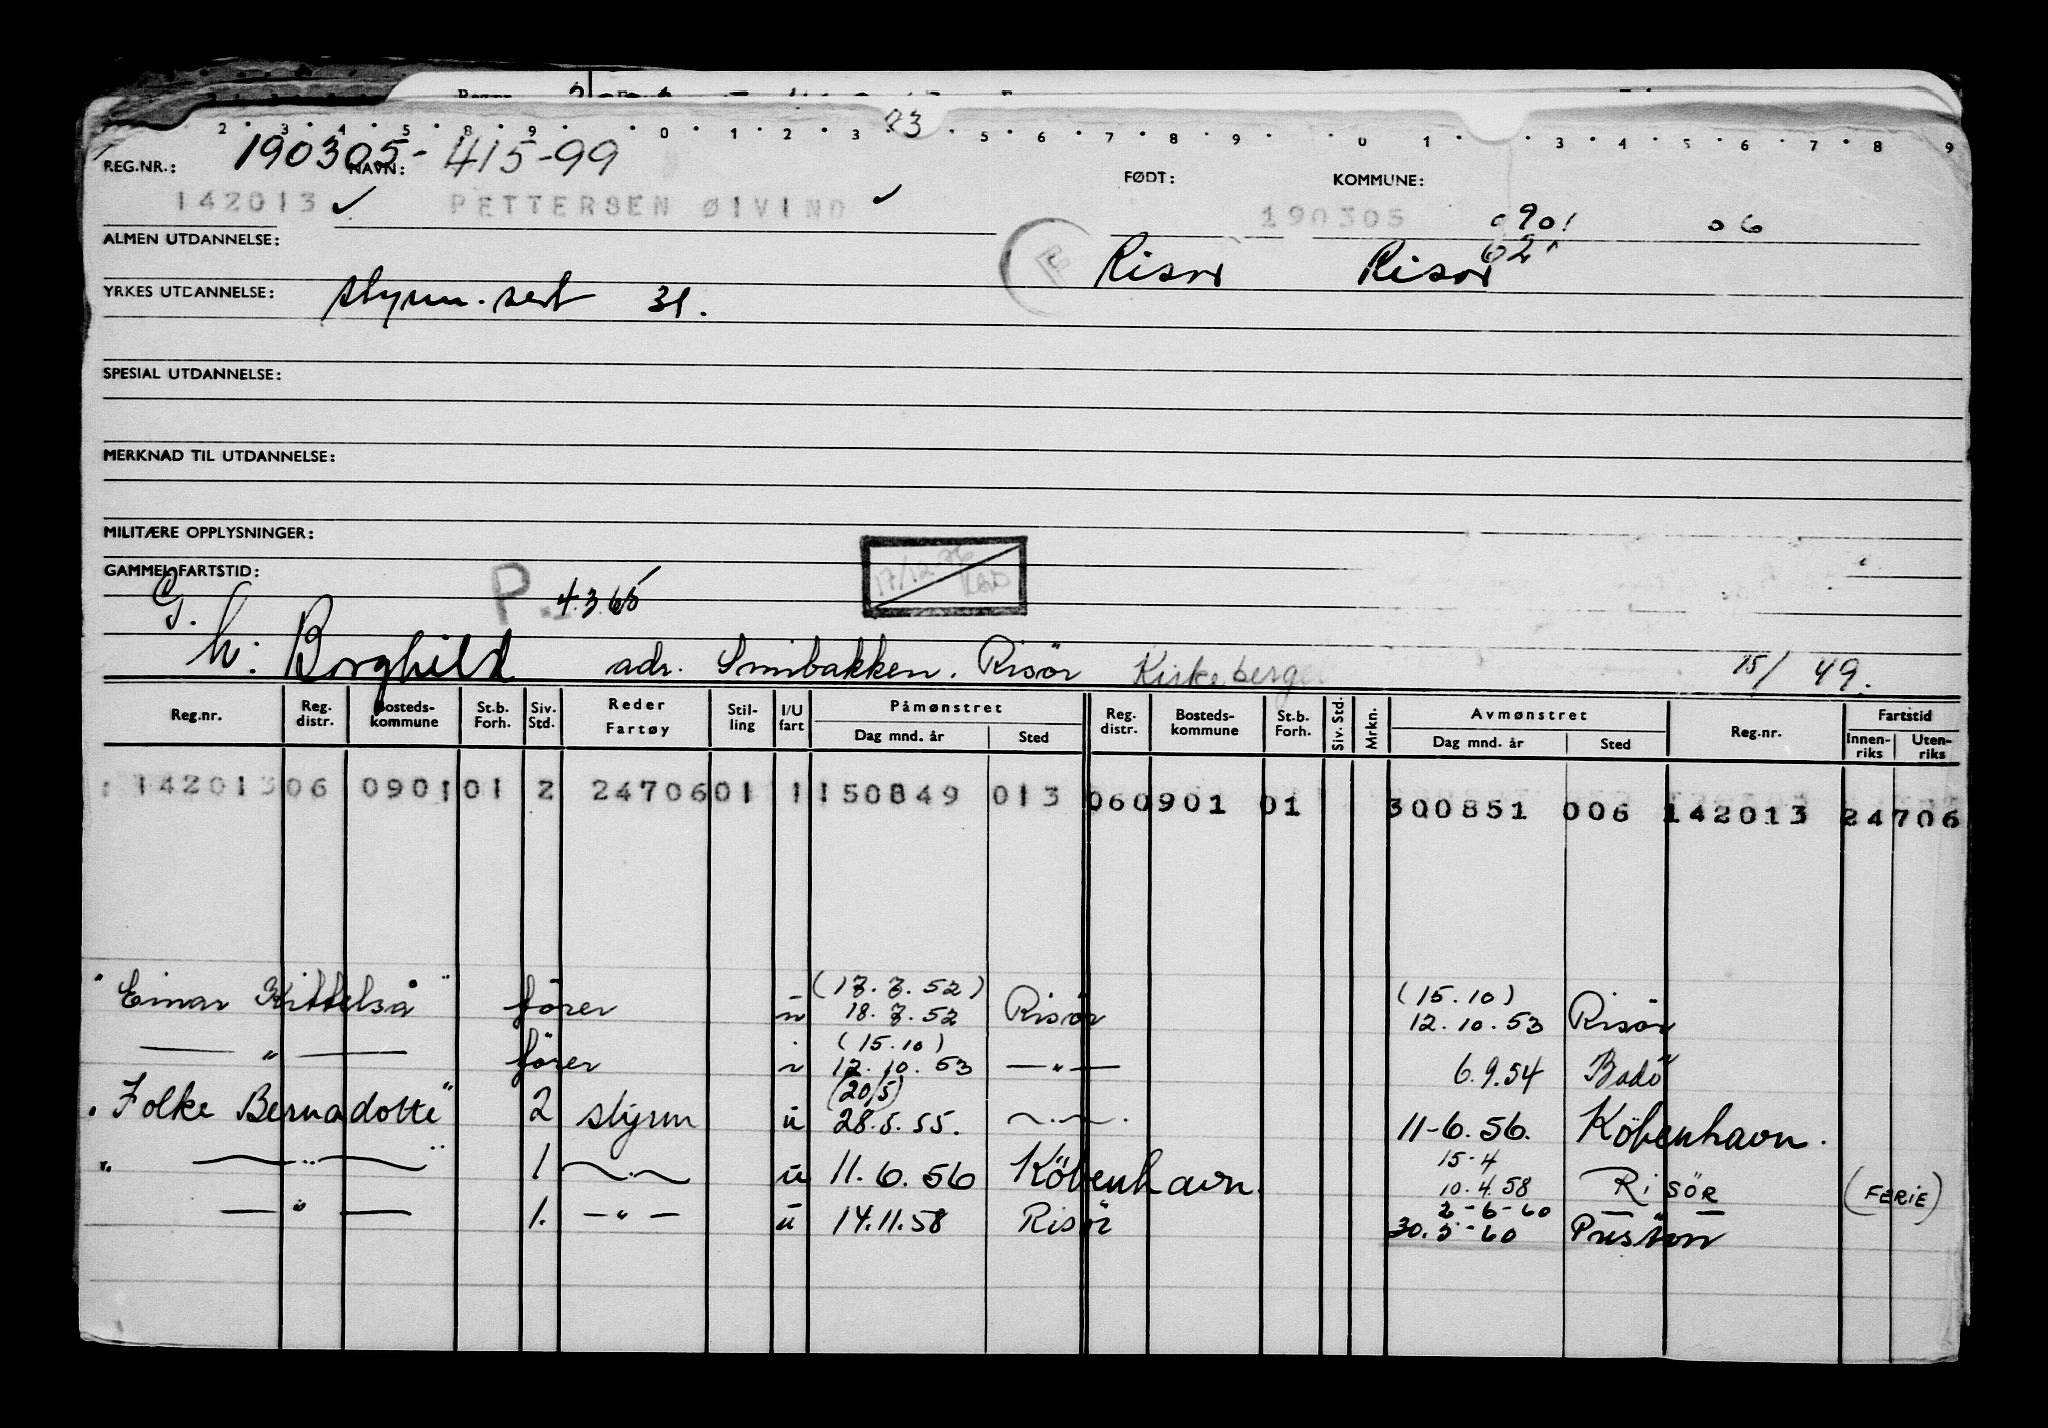 2 3 4 5 8 9 0 1 2 3 23 5 6 7 8 9 0 1 3 4 5 6 7 8 9
REG.NR.: 190305-415-99 NAVN: FØDT: KOMMUNE:
142013 ✓ PETTERSEN ØIVIND ✓ 190305 0901 06
ALMEN UTDANNELSE: Risør Risør 02
YRKES UTDANNELSE: styrm. sert 31.
SPESIAL UTDANNELSE:
MERKNAD TIL UTDANNELSE:
MILITÆRE OPPLYSNINGER:
GAMMEL FARTSTID: 17/12-76
G. P. 4.3.65
h: Borghild adr. Smibakken. Risör Kirkeberget 15/ 49.
Reg.nr. Reg. distr. Bosteds-kommune St.b. Forh. Siv. Std. Reder Fartøy Stil-ling I/U fart Påmønstret Dag mnd. år Sted Reg. distr. Bosteds-kommune St.b. Forh. Siv. Std. Mrkn. Avmønstret Dag mnd. år Sted Reg.nr. Fartstid Innen-riks Uten-riks
142013 06 0901 01 2 24706 01 1 150849 013 06 0901 01 300851 006 142013 24706
(17.7.52) (15.10)
"Einar Kittelså" förer u 18.7.52 Risör 12.10.53 Risör
(15.10)
— " — förer i 12.10.53 — " — 6.9.54 Bodö
(20/5)
"Folke Bernadotte" 2 styrm u 28.5.55. — " — 11-6.56. Köbenhavn.
15-4
" — " — " 1 — " — u 11.6.56 Köbenhavn. 10.4.58 Risör (FERIE)
2-6-60
— " — 1. — " — u 14.11.58 Risör 30.5-60 Preston